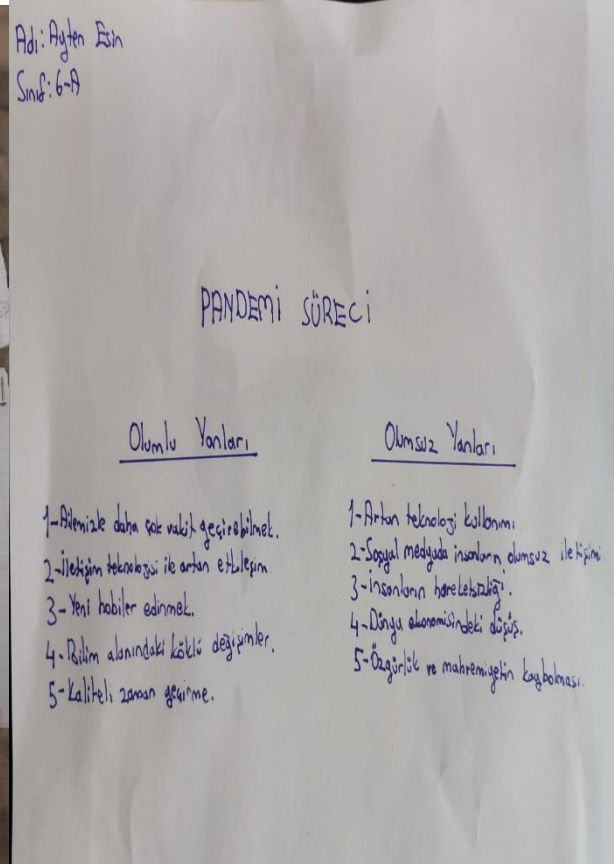 Adı: Ayten Esin
Sınıf: 6-A
PANDEMİ SÜRECİ
Olumlu Yanları
1-Ailemizle daha çok vakit geçirebilmek.
2-İletişim teknolojisi ile artan etkileşim.
3-Yeni hobiler edinmek.
4-Bilim alanındaki köklü değişimler.
5-Kaliteli zaman geçirme.
Olumsuz Yanları
1-Artan teknoloji kullanımı.
2-Sosyal medyada insanların olumsuz iletişimi
3-İnsanların hareketsizliği.
4-Dünya ekonomisindeki düşüş.
5-Özgürlük ve mahremiyetin kaybolması.